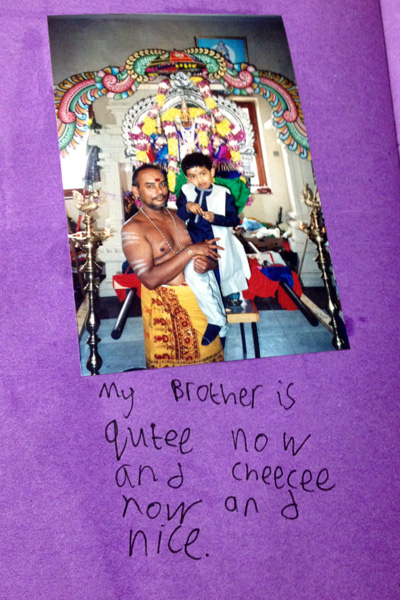 My Brother is
qutee now
and cheecee
now and
nice.